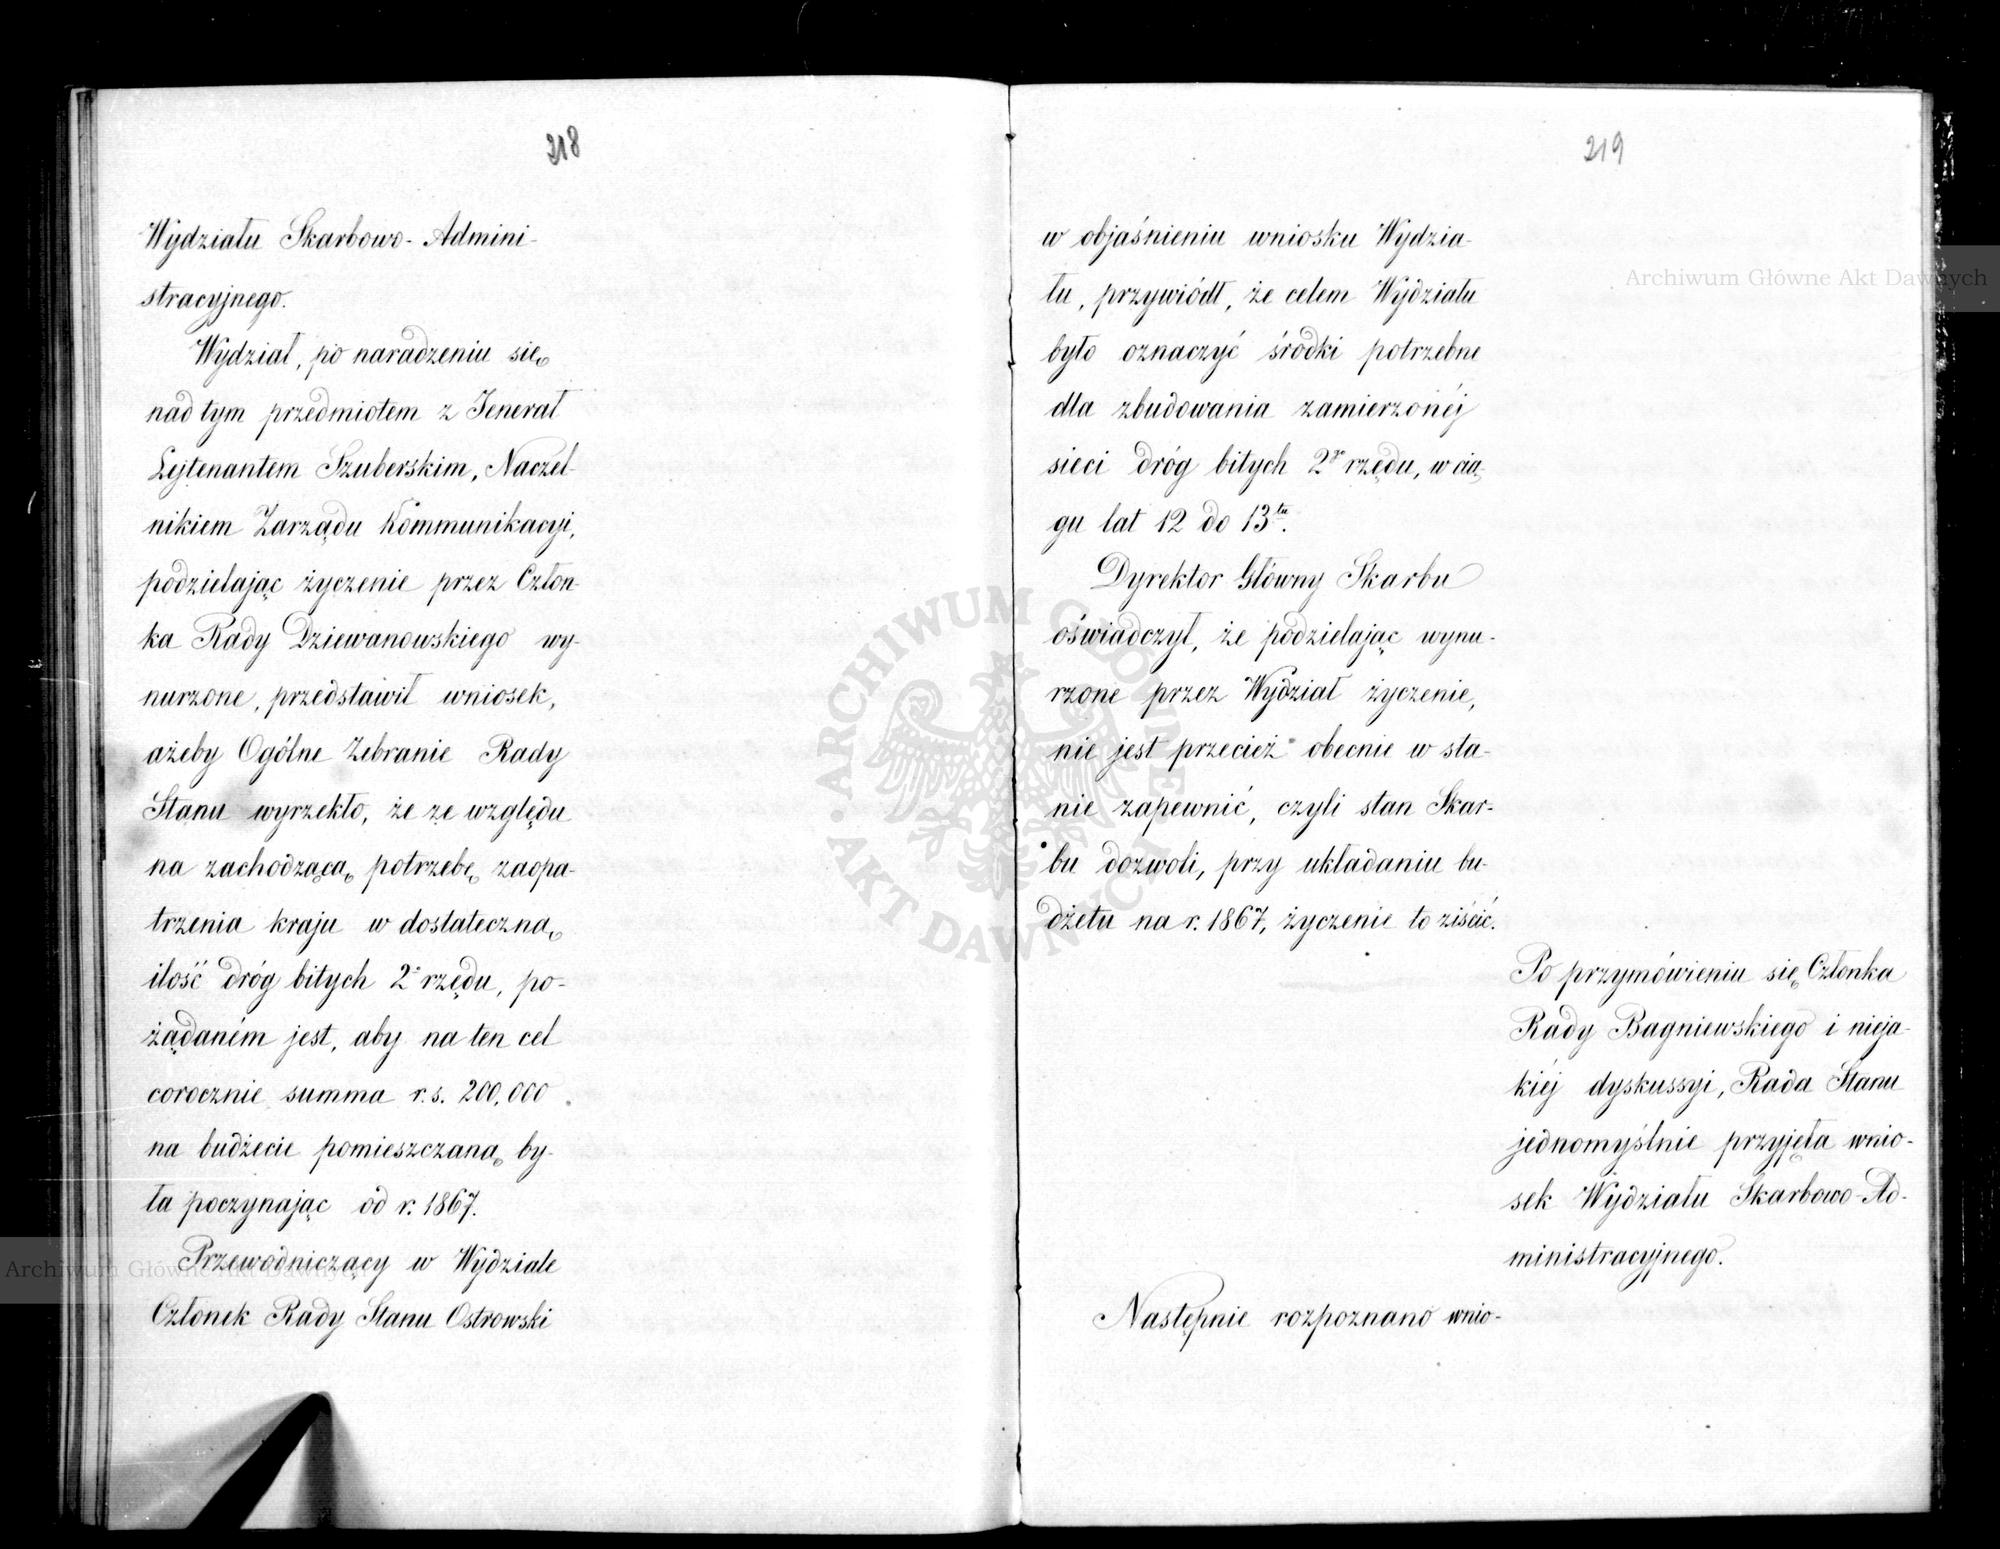 218
Wydziału Skarbowo-Admini-
stracyjnego.
Wydział, po naradzeniu się
nad tym przedmiotem z Jenerał
Lejtenantem Szuberskim, Naczel-
nikiem Zarządu Kommunikacyi,
podzielając życzenie przez Człon-
ka Rady Dziewanowskiego wy-
nurzone, przedstawił wniosek,
ażeby Ogólne Zebranie Rady
Stanu wyrzekło, że ze względu
na zachodzącą potrzebę zaopa-
trzenia kraju w dostateczną
ilość dróg bitych 2º rzędu, po-
żądaném jest, aby na ten cel
corocznie summa r.s. 200,000
na budżecie pomieszczaną by-
ła poczynając od r. 1867.
Przewodniczący w Wydziale
Członek Rady Stanu Ostrowski
219
w objaśnieniu wniosku Wydzia-
łu, przywiódł, że celem Wydziału
było oznaczyć środki potrzebne
dla zbudowania zamierzonéj
sieci dróg bitych 2go rzędu, w cią-
gu lat 12 do 13tu.
Dyrektor Główny Skarbu
oświadczył, że podzielając wynu-
rzone przez Wydział życzenie,
nie jest przecież obecnie w sta-
nie zapewnić, czyli stan Skar-
bu dozwoli, przy układaniu bu-
dżetu na r. 1867, życzenie to ziścić.
Po przymówieniu się Członka
Rady Bagniewskiego i nieja-
kiéj dyskussyi, Rada Stanu
jednomyślnie przyjęła wnio-
sek Wydziału Skarbowo-Ad-
ministracyjnego.
Następnie rozpoznano wnio-
Archiwum Główne Akt Dawnych
Archiwum Główne Akt Dawnych
ARCHIWUM GŁÓWNE AKT DAWNYCH